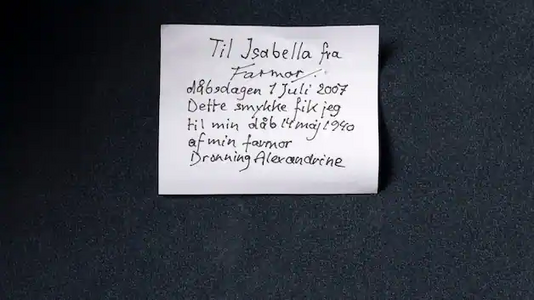 Til Isabella fra
Farmor.
dåbsdagen 1 Juli 2007
Dette smykke fik jeg
til min dåb 14 maj 1940
af min farmor
Dronning Alexandrine